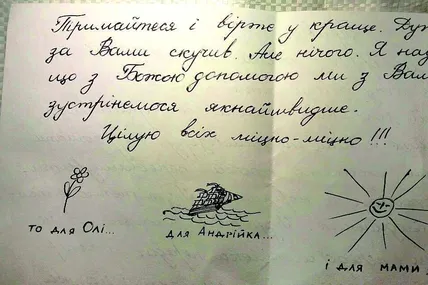 Тримайтеся і вірте у краще. Ду
за Вами скучив. Але нічого. Я на
що з Божою допомогою ми з Вам
зустрінемося якнайшвидше.
Цілую всіх міцно-міцно!!!
то для Олі... для Андрійка... і для мами